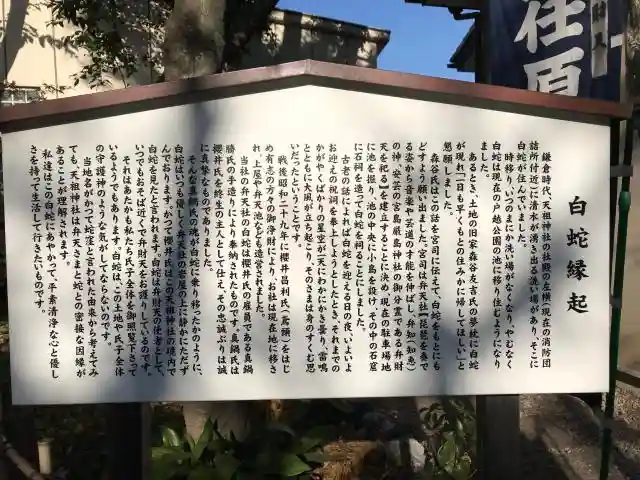 荏原
財人
白蛇縁起
鎌倉時代、天祖神社の社殿の左横(現在の消防団
詰所付近)に清水が湧き出る洗い場があり、そこに
白蛇が住んでいました。
時移り、いつのまにか洗い場がなくなり、やむなく
白蛇は現在の戸越公園の池に移り住むようになり
ました。
あるとき、土地の旧家森谷友吉氏の夢枕に白蛇
が現れ「一日も早くもとの住みかに帰してほしい」と
懇願しました。
森谷氏はこの話を宮司に伝えて、白蛇をもとにも
どすよう願い出ました。宮司は弁天社【琵琶を奏で
る姿から音楽や芸道の才能を伸ばし、弁知(知恵)
の神、安芸の宮島厳島神社の御分霊である弁財
天を祀る】を建立することに決め、現在の駐車場地
に池を掘り、池の中央に小島を設け、その中の石窟
に石祠を造って白蛇を祠ることにしました。
古老の話によれば白蛇を迎える日の夜、いよいよ
お迎えの祝詞を奏上しようとしたとき、それまでの
かがやくばかりの星空が天にわかにかき曇り、雷鳴
とともに大風が立ち起こり、そのさまは身のすくむ思
いだったということです。
戦後昭和二十九年に櫻井昌利氏(鳶頭)をはじ
め有志の方々の御浄財により、お社は現在地に移さ
れ、上屋や弁天池なども造営されました。
当社の弁天社の白蛇は櫻井氏の雇員である真鍋
勝氏の手造りにより奉納されたものです。真鍋氏は
櫻井氏を終生の主人として仕え、その忠誠ぶりは誠
に真摯なものでありました。
そんな真鍋氏の魂が白蛇に乗り移ったかのように、
白蛇はいつも優しく弁天社の岩屋の上に静かにたたず
んでおります。かつて櫻井氏はこの天祖神社の境内で
白蛇を見たと言われます。白蛇は弁財天の使者として、
いつでもおそば近くで弁財天をお護りしているのです。
それはあたかも私たち氏子全体を御照覧下さって
いるようでもあります。白蛇は、この土地や氏子全体
の守護神のような気がしてならないのです。
当地名がかつて蛇窪と言われた由来から考えてみ
ても、天祖神社は弁天さまと蛇との密接な因縁が
あることが理解されます。
私達はこの白蛇にあやかって、平素清浄な心と優し
さを持って生活して行きたいものです。